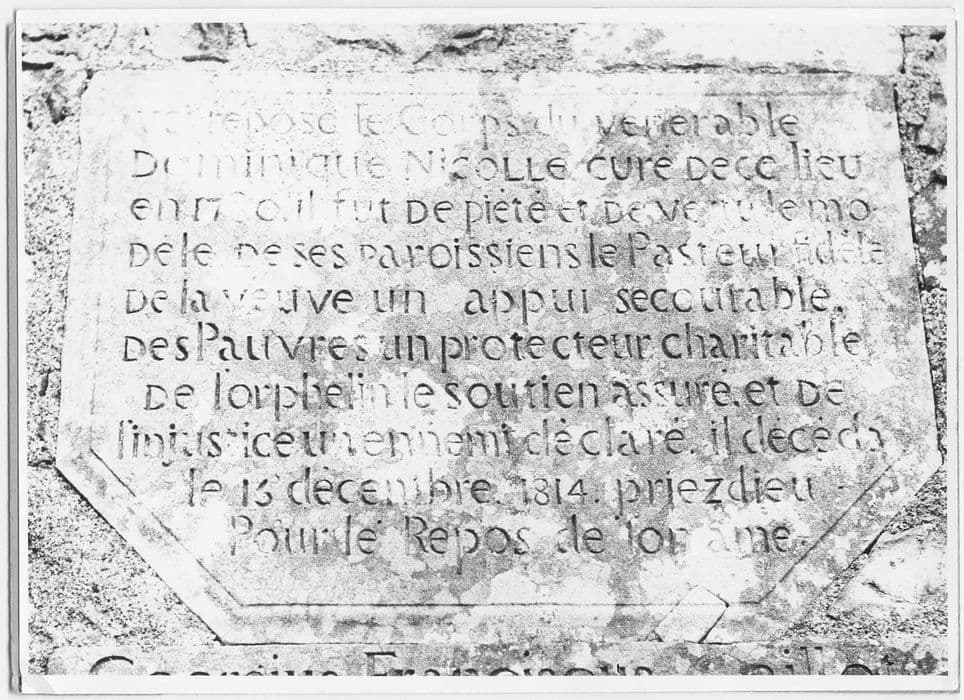 repose le Corps du venerable
Dominique Nicolle cure de ce lieu
en il fut de piété et de vertu le mo-
dèle de ses paroissiens le Pasteur fidèle
de la veuve un appui secourable,
des Pauvres un protecteur charitable,
de l'orphelin le soutien assuré, et de
l'injustice un ennemi déclaré. il décéda
le 15 décembre. 1814. priez dieu
Pour le Repos de son ame.
Franciscus